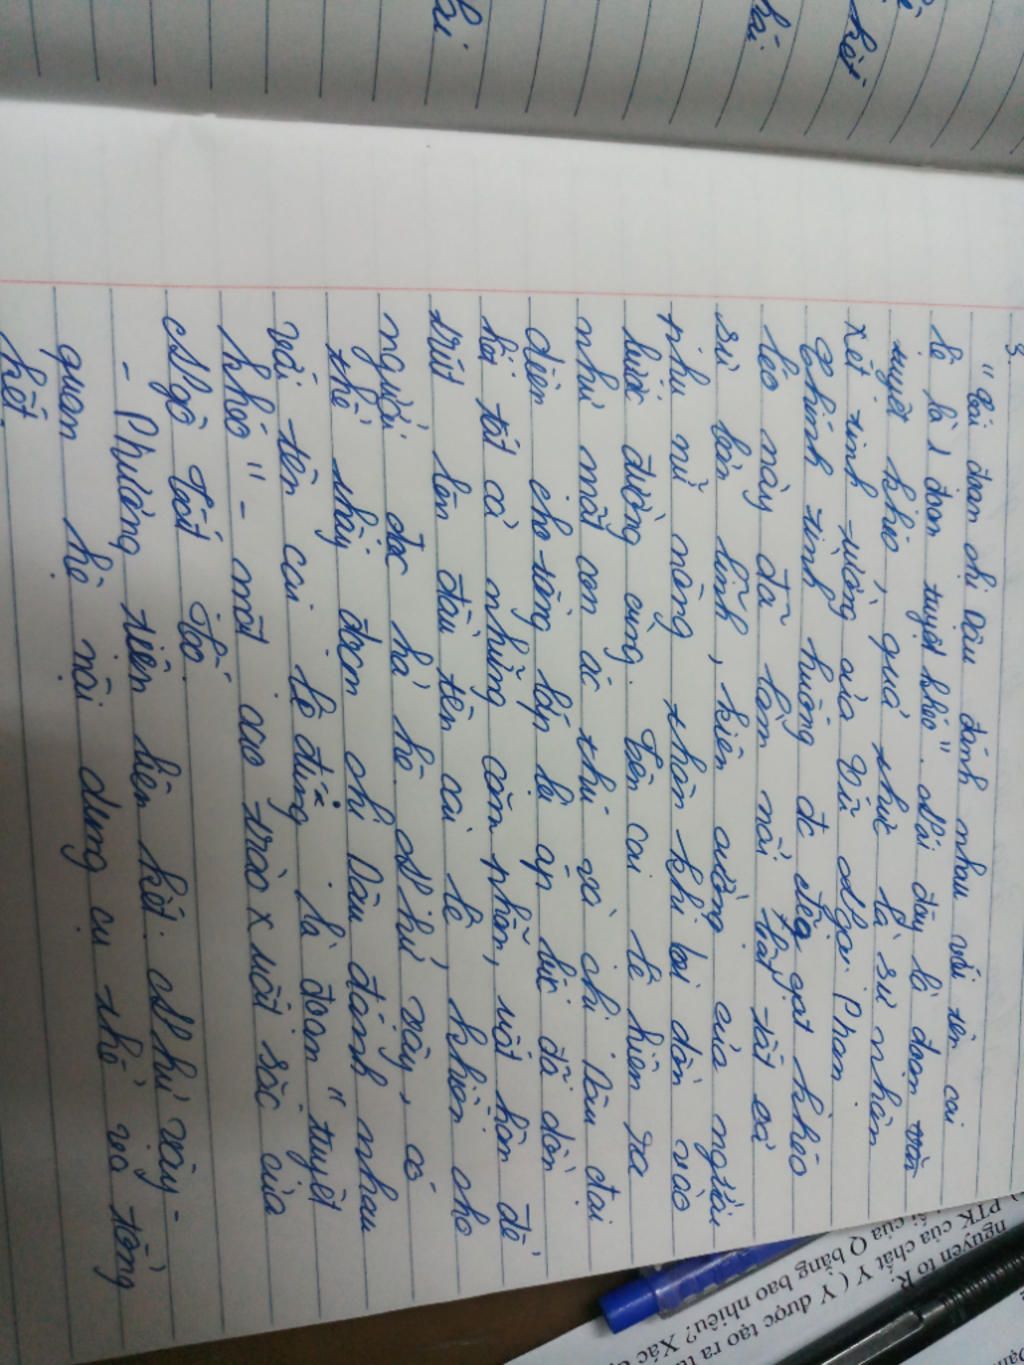 3.
"Cái đoạn chị Dậu đánh nhau với tên cai
lệ là 1 đoạn tuyệt khéo". Nói đây là đoạn văn
tuyệt khéo, quả thực là sự nhận
xét tinh tường của Vũ Ngọc Phan.
Chính tình huống đc gọt khéo
léo này đã làm nổi bật tất cả
sự bản lĩnh, kiên cường của người
phụ nữ nông thôn khi bị dồn vào
bước đường cùng. Tên cai lệ hiện ra
như một con ác thú và chị Dậu đại
diện cho tầng lớp bị áp bức đã dồn
hết tất cả những căm phẫn, uất hận để
trút lên đầu tên cai lệ, khiến cho
người đọc hả hê. Như vậy, có
thể thấy đoạn chị Dậu đánh nhau
với tên cai lệ đúng là đoạn "tuyệt
khéo" - một cao trào x mất sắc của
Ngô Tất Tố.
- Phương tiện liên kết: Như vậy -
quan hệ nội dung cụ thể và tổng
kết.